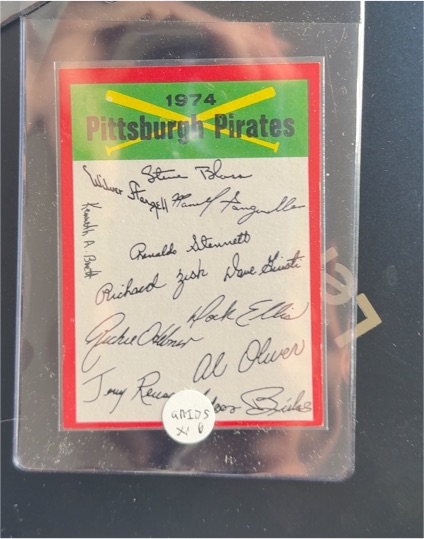 1974
Pittsburgh Pirates
Steve Blass
Wilver Stargell Manuel Sanguillen
Kenneth A. Brett
Renaldo Stennett
Richard Zisk Dave Giusti
Richie Hebner Dock Ellis
Al Oliver
Jerry Reuss